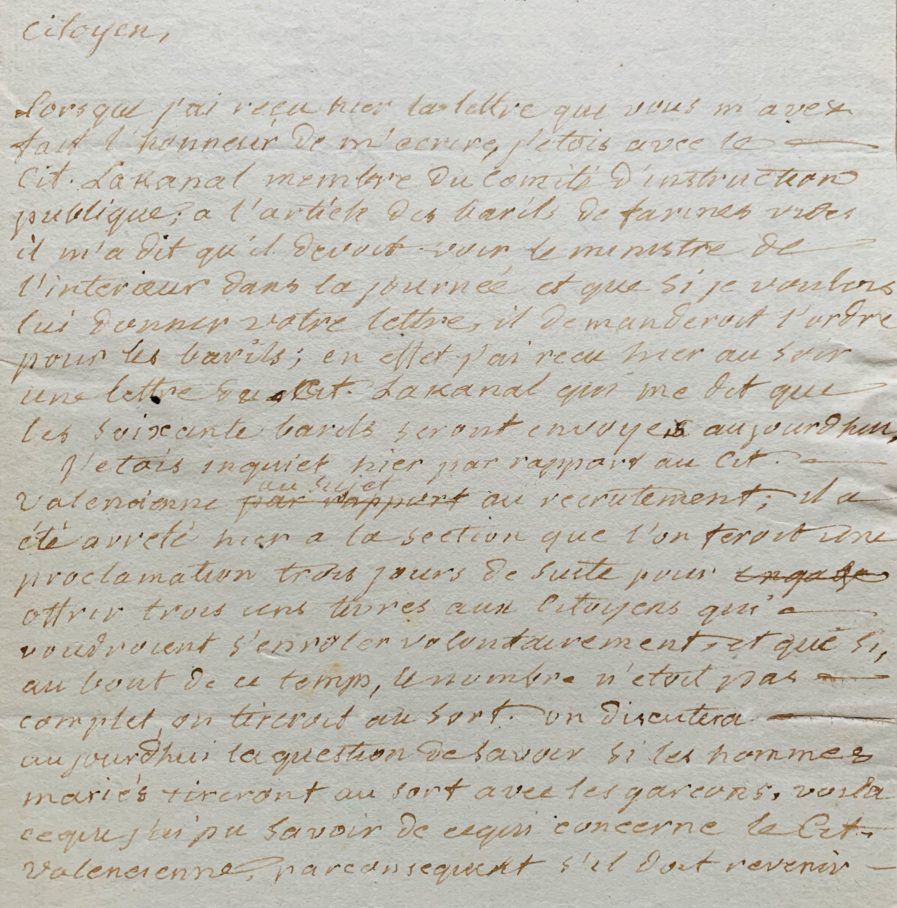 Citoyen,
Lorsque j'ai reçu hier la lettre que vous m'avez
fait l'honneur de m'ecrire, j'etois avec le
Cit. Lakanal membre du Comité d'instruction
publique; a l'article des barils de farines vides
il m'a dit qu'il devoit voir le ministre de
l'interieur dans la journée et que si je voulois
lui donner votre lettre, il demanderoit l'ordre
pour les barils; en effet j'ai recu hier au soir
une lettre du Cit. Lakanal qui me dit que
les soixante barils seront envoyés aujourdhui,
j'etois inquiet hier par rapport au Cit.
Valencienne par rapport au sujet au recrutement; il a
été arreté hier a la section que l'on feroit une
proclamation trois jours de suite pour engage
offrir trois cens livres aux Citoyens qui
voudroient s'enroler volontairement, et que si,
au bout de ce temps, le nombre n'etoit pas
complet, on tireroit au sort. on discutera
aujourd'hui la question de savoir si les hommes
mariés tireront au sort avec les garcons, voila
ce que j'ai pu savoir de ce qui concerne le Cit.
Valencienne, par consequent s'il doit revenir